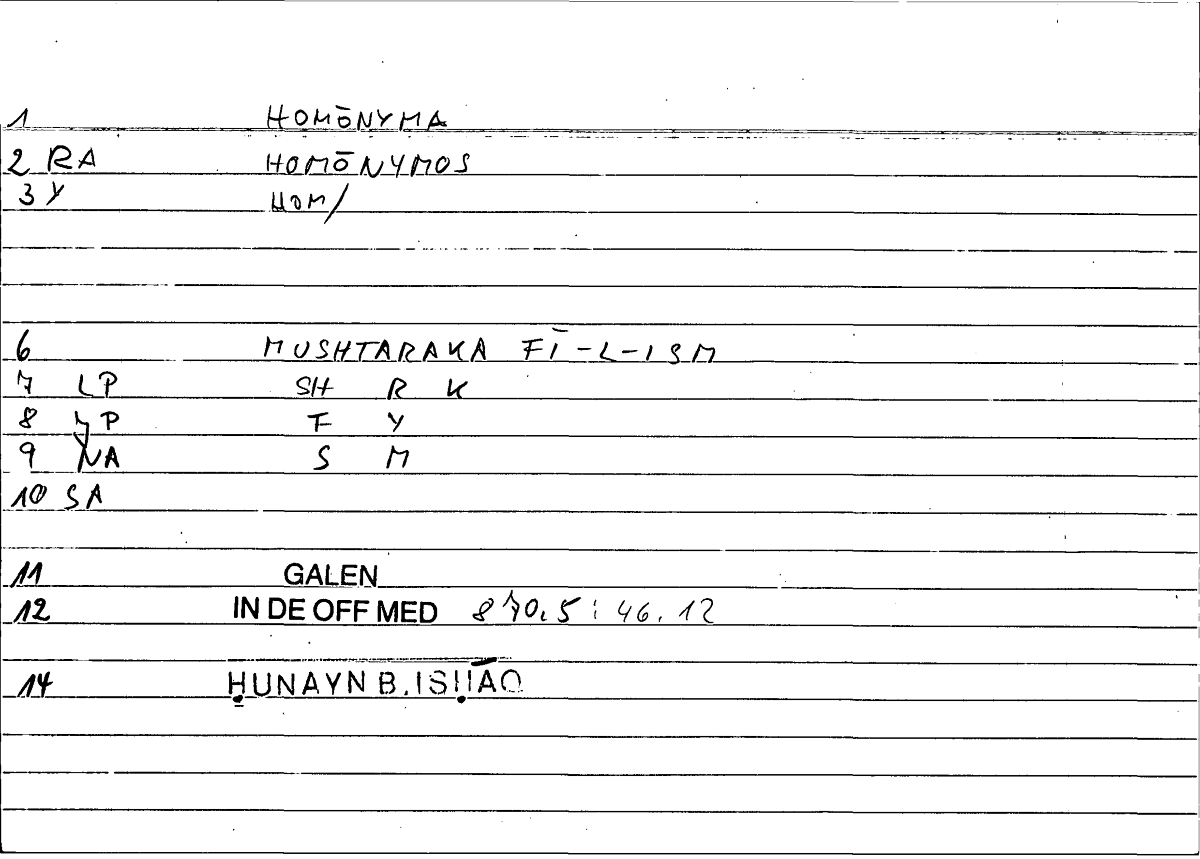 1 HOMŌNYMA
2 RA HOMŌNYMOS
3 Y HOM/
6 MUSHTARAKA FĪ-L-ISM
7 LP SH R K
8 P F Y
9 NA S M
10 SA
11 GALEN
12 IN DE OFF MED 870.5 : 46.12
14 ḤUNAYN B. ISḤĀQ